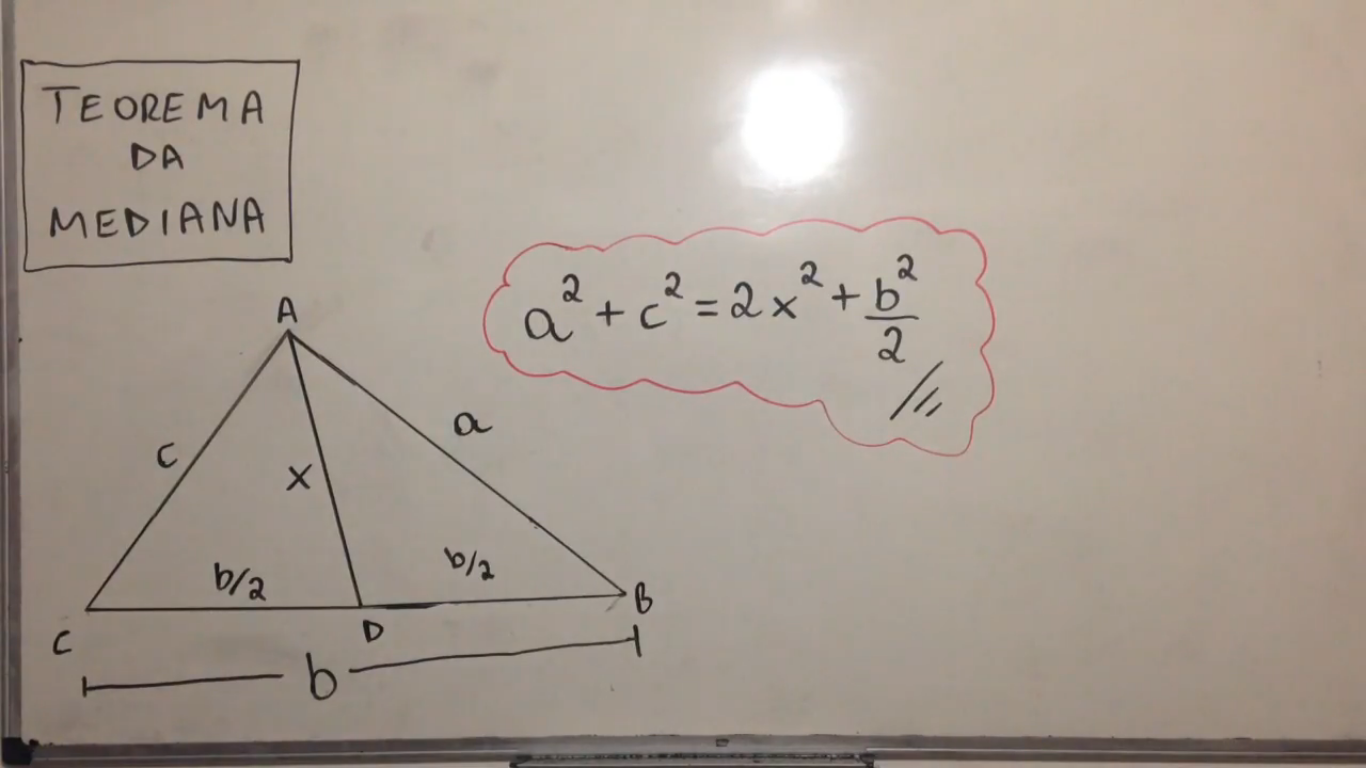 TEOREMA
DA
MEDIANA
A
a² + c² = 2x² + b²/2
a
c
x
b/2
b/2
B
C
D
b